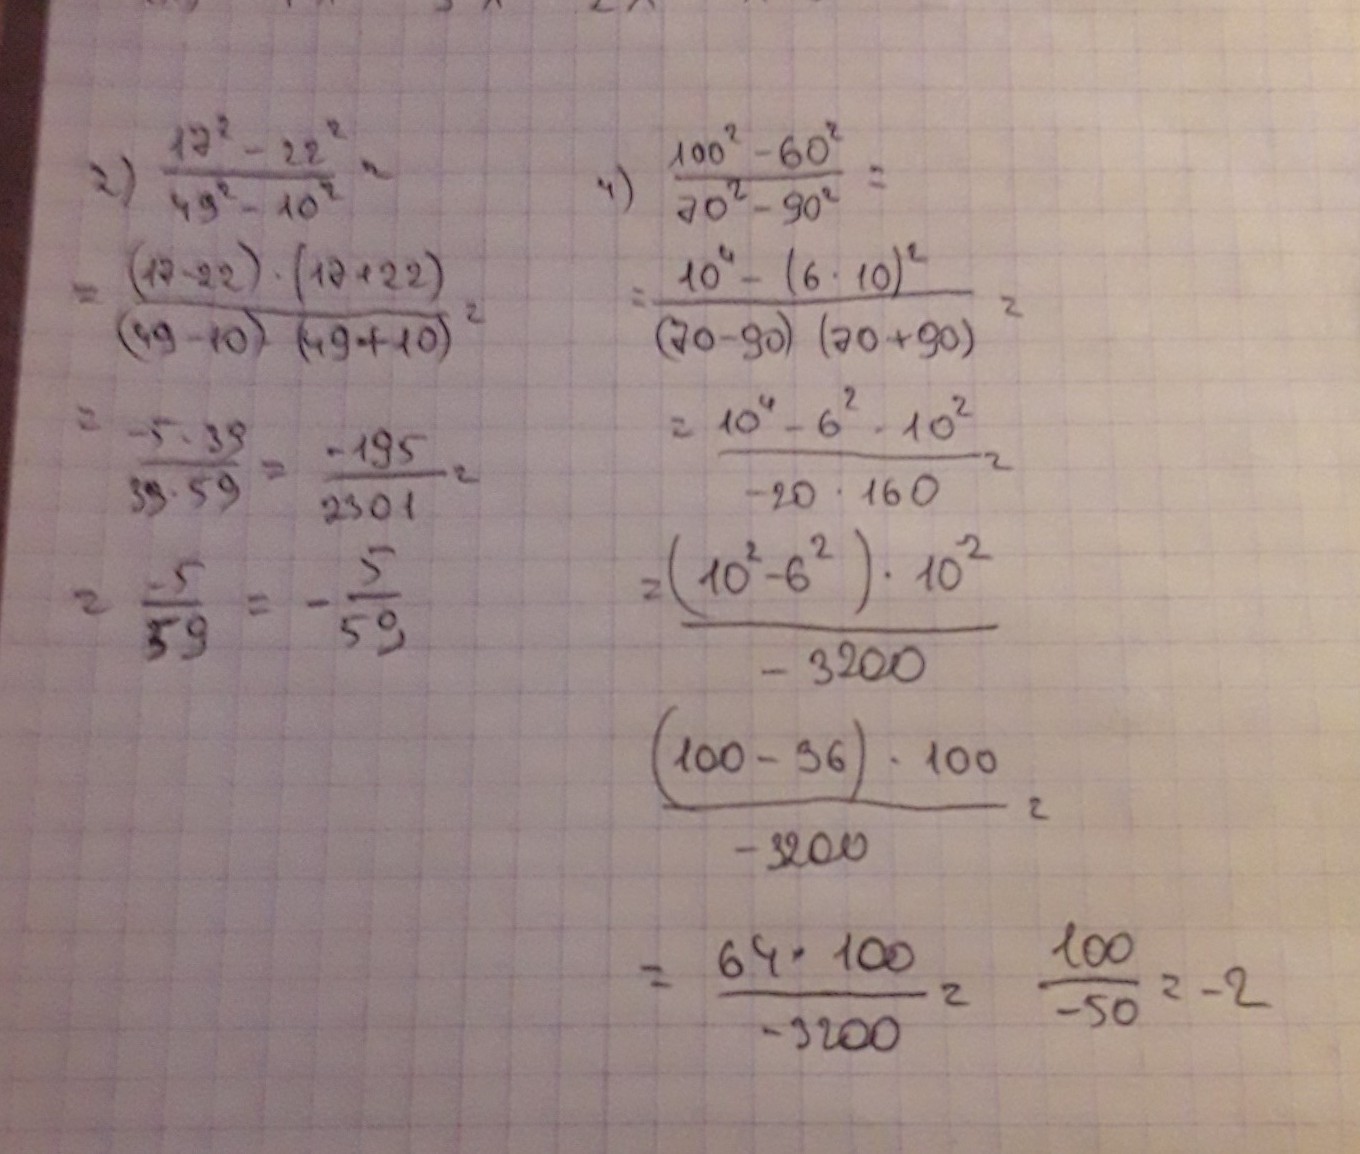 2) (17² - 22²)/(49² - 10²) =
= ((17-22)·(17+22))/((49-10)·(49+10)) =
= (-5·39)/(39·59) = (-195)/(2301) =
= (-5)/(59) = - 5/59
4) (100² - 60²)/(70² - 90²) =
= (10⁴ - (6·10)²)/((70-90)(70+90)) =
= (10⁴ - 6² · 10²)/(-20 · 160) =
= ((10² - 6²) · 10²)/(-3200)
((100 - 36) · 100)/(-3200) =
= (64 · 100)/(-3200) = (100)/(-50) = -2